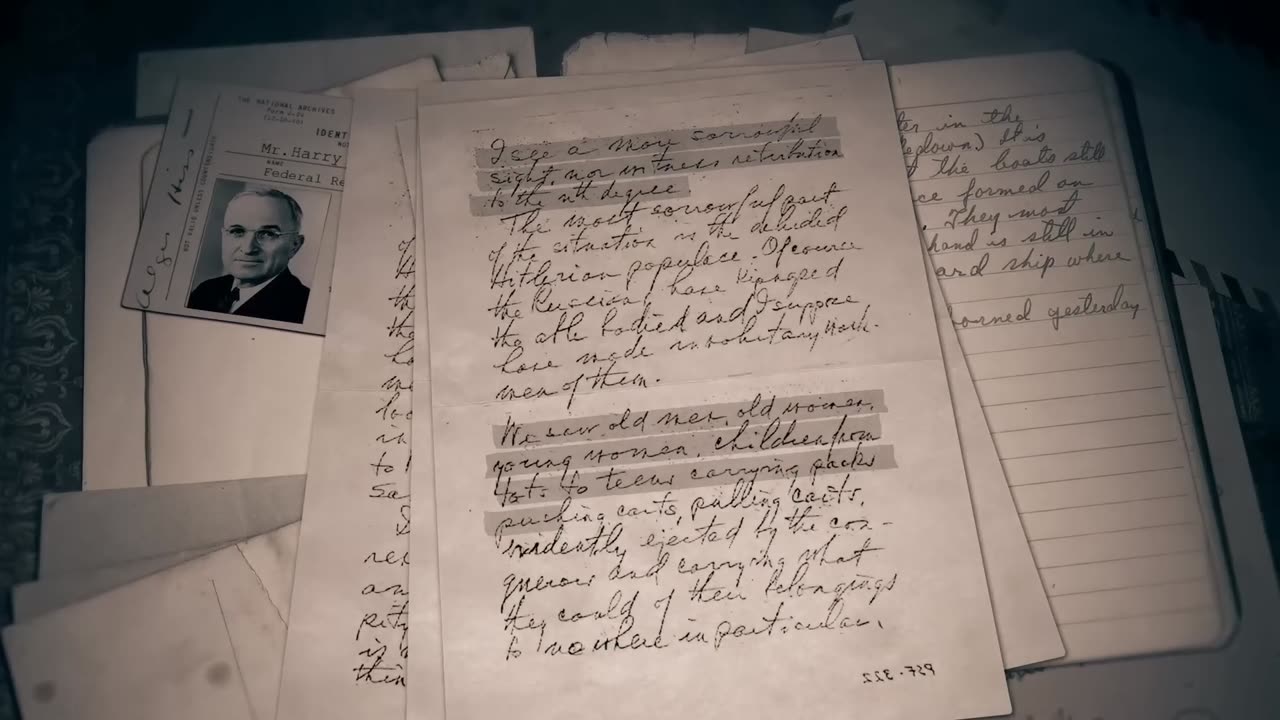 THE NATIONAL ARCHIVES
IDENT
Mr. Harry
NAME
Federal Re
Alger Hiss
I see a more sorrowful
sight, nor witness retribution
to the nth degree
The most sorrowful part
of the situation is the deluded
Hitlerian populace. Of course
the Russians have kidnaped
the able bodied and I suppose
have made involuntary work-
men of them.
We saw old men, old women,
young women, children from
tots to teens carrying packs
pushing carts, pulling carts,
evidently ejected by the con-
querors and carrying what
they could of their belongings
to nowhere in particular.
PSF-322
in the
It is
the boats still
ce formed on
They most
hand is still in
ard ship where
orned yesterday